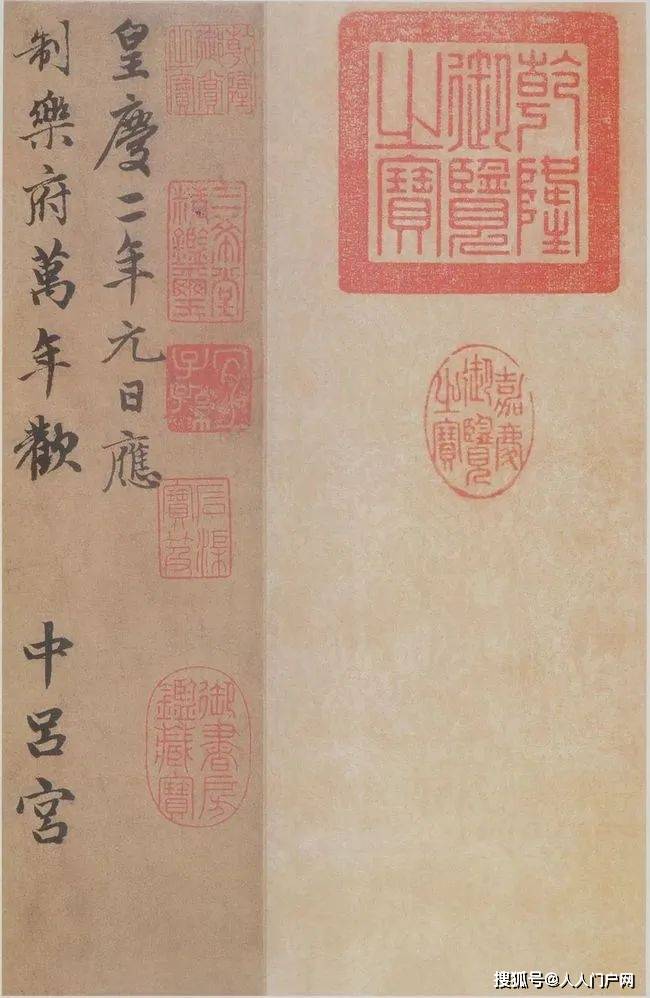 乾隆
御覽
之寶
嘉慶
御覽
之寶
乾隆
御賞
之寶
三希堂
精鑑璽
宜
子孫
石渠
寶笈
御書房
鑑藏寶
皇慶二年元日應
制樂府萬年歡 中呂宮
搜狐号@人人门户网